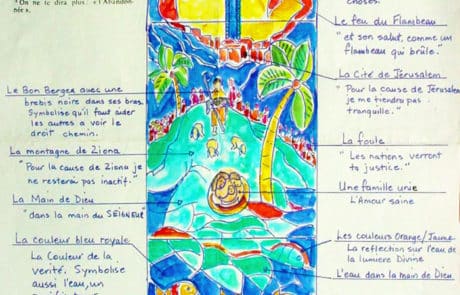 "On ne te dira plus: «l'Abandon-
née»,
choses.
Le feu du Flambeau
"et son salut, comme un
flambeau qui brûle."
Le Bon Berger avec une
brebis noire dans ses bras.
Symbolise qu'il faut aider
les autres a voir le
droit chemin.
La montagne de Ziona
"Pour la cause de Ziona je
ne resterai pas inactif."
La Main de Dieu
"dans la main du SEIGNEUR"
La couleur bleu royale
La Couleur de la
verité. Symbolise
aussi l'eau, un
La Cité de Jérusalem
"Pour la cause de Jérusalem
je me tiendrai pas
tranquille."
La foule
"Les nations verront
ta justice."
Une famille unie
L'Amour saine
Les couleurs Orange/Jaune
La reflection sur l'eau de
la lumiere Divine
L'eau dans la main de Dieu